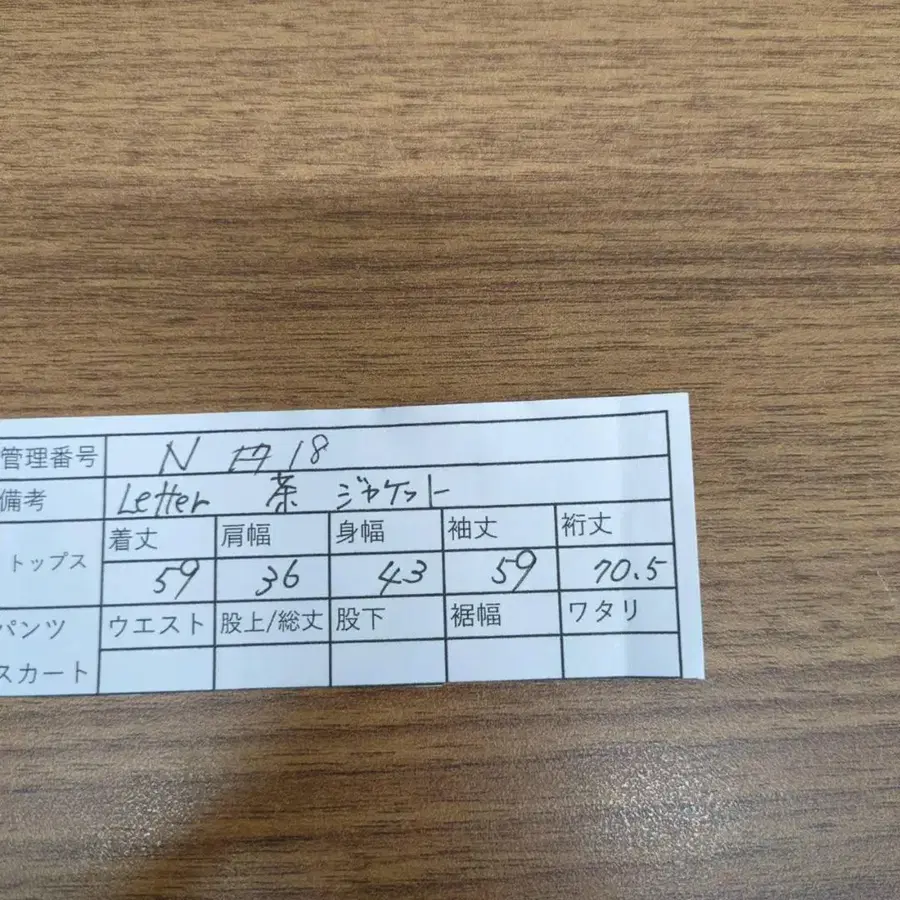 管理番号 N 18
備考 Letter 茶 ジャケット
トップス 着丈 肩幅 身幅 袖丈 裄丈
59 36 43 59 70.5
パンツ ウエスト 股上/総丈 股下 裾幅 ワタリ
スカート